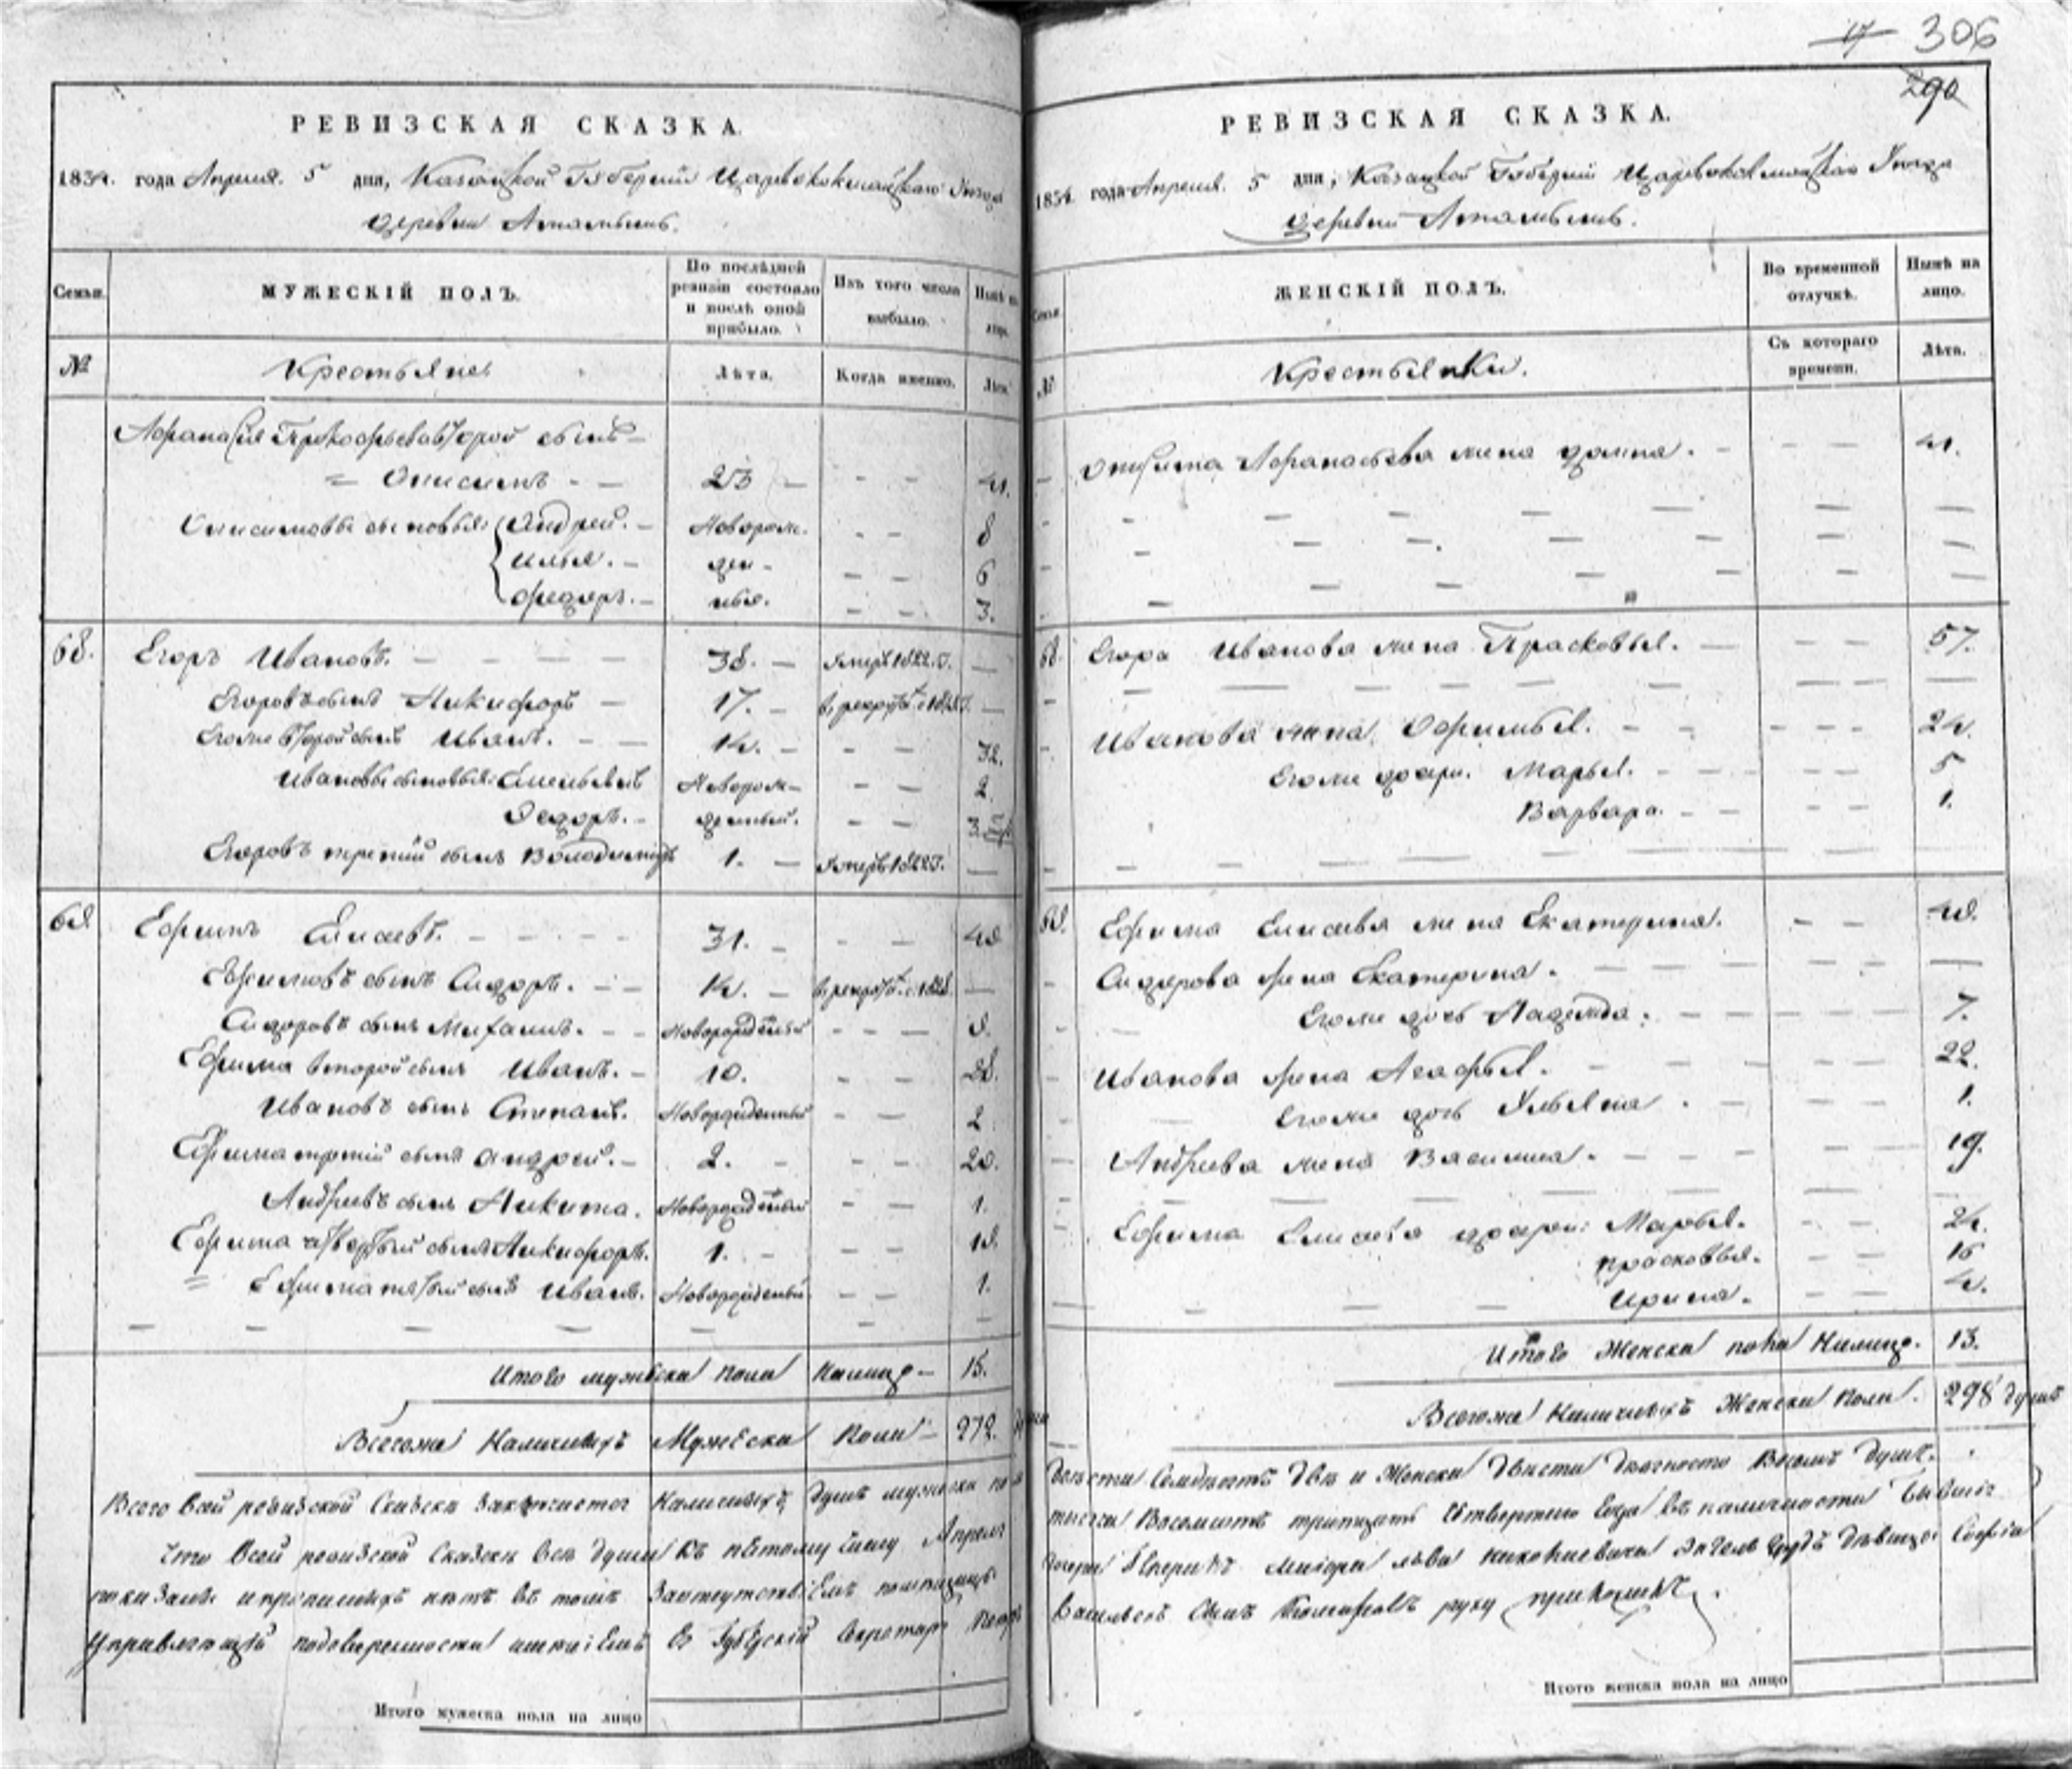 РЕВИЗСКАЯ СКАЗКА.
1834. года Апреля. 5 дня, Казанской Губернии Царевококшайскаго Уезда
деревни
Семьи.
МУЖЕСКІЙ ПОЛЪ.
По послѣдней ревизіи состояло и послѣ оной прибыло.
Изъ того числа выбыло.
Нынѣ на лицо.
№
Крестьяне
Лѣта.
Когда именно.
Лѣта.
Афанасья Прокофьева второй сынъ
Онисимъ 23 41.
Онисимовы сыновья: Андрей. Новорож- 8
Илья. ден- 6
Федоръ. ныя. 3.
68. Егоръ Ивановъ. 38. Умеръ 1822. г.
Егоровъ сынъ Никифоръ 17. в рекруты
Егора второй сынъ Иванъ. 14. 32.
Ивановы сыновья: Емельянъ Новорож- 2.
Федоръ. денный.
Егоровъ третий сынъ Володимиръ 1. Умеръ 1822 г.
69 Ефимъ Елисеевъ. 31. 49
Ефимовъ сынъ Сидоръ. 14. в рекруты
Сидоровъ сынъ Михаилъ. Новорожденный 9.
Ефима второй сынъ Иванъ. 10. 28.
Ивановъ сынъ Степанъ. Новорожденный 2
Ефима третий сынъ Андрей. 2. 20.
Андреевъ сынъ Никита. Новорожденный 1.
Ефима четвертый сынъ Никифоръ. 1. 19.
Ефима пятый сынъ Иванъ. Новорожденный 1.
Итого мужеска пола налицо 15.
Всегоже Наличныхъ Мужеска Пола 272. душъ
Всего в сей ревизской Сказки заключается Наличныхъ душъ мужеска пола
Что в сей ревизской Сказки все души къ пятому числу Апреля
показаны и прописныхъ нетъ въ томъ
Управляющий Губернский Секретарь
Итого мужеска пола на лицо
17 306
290
РЕВИЗСКАЯ СКАЗКА.
1834. года Апреля. 5 дня, Казанской Губернии Царевококшайскаго Уезда
деревни
Семьи.
ЖЕНСКІЙ ПОЛЪ.
Во временной отлучкѣ.
Нынѣ на лицо.
№
Крестьянки.
Съ котораго времени.
Лѣта.
Онисима Афанасьева жена Домна. 41.
68. Егора Иванова жена Прасковья. 57.
Иванова жена Офимья. 24.
Егоже дочери. Марья. 5
Варвара. 1.
69. Ефима Елисеева жена Екатерина. 49.
Сидорова жена Екатерина.
Егоже дочь Надежда. 7.
Иванова жена Агафья. 22.
Егоже дочь Ульяна 1.
Андреева жена Василиса. 19.
Ефима Елисеева дочери: Марья. 24.
Прасковья. 16
Ирина. 4.
Итого Женска пола Налицо. 13.
Всегоже Наличныхъ Женска Пола. 298 душъ
двѣсти Семдесятъ двѣ и Женска двѣсти девяносто Восемь душъ.
тысяча Восемьсотъ тритцать Четвертого Года въ наличности бывшія
дѣвицы Софьи
руку приложилъ.
Итого женска пола на лицо